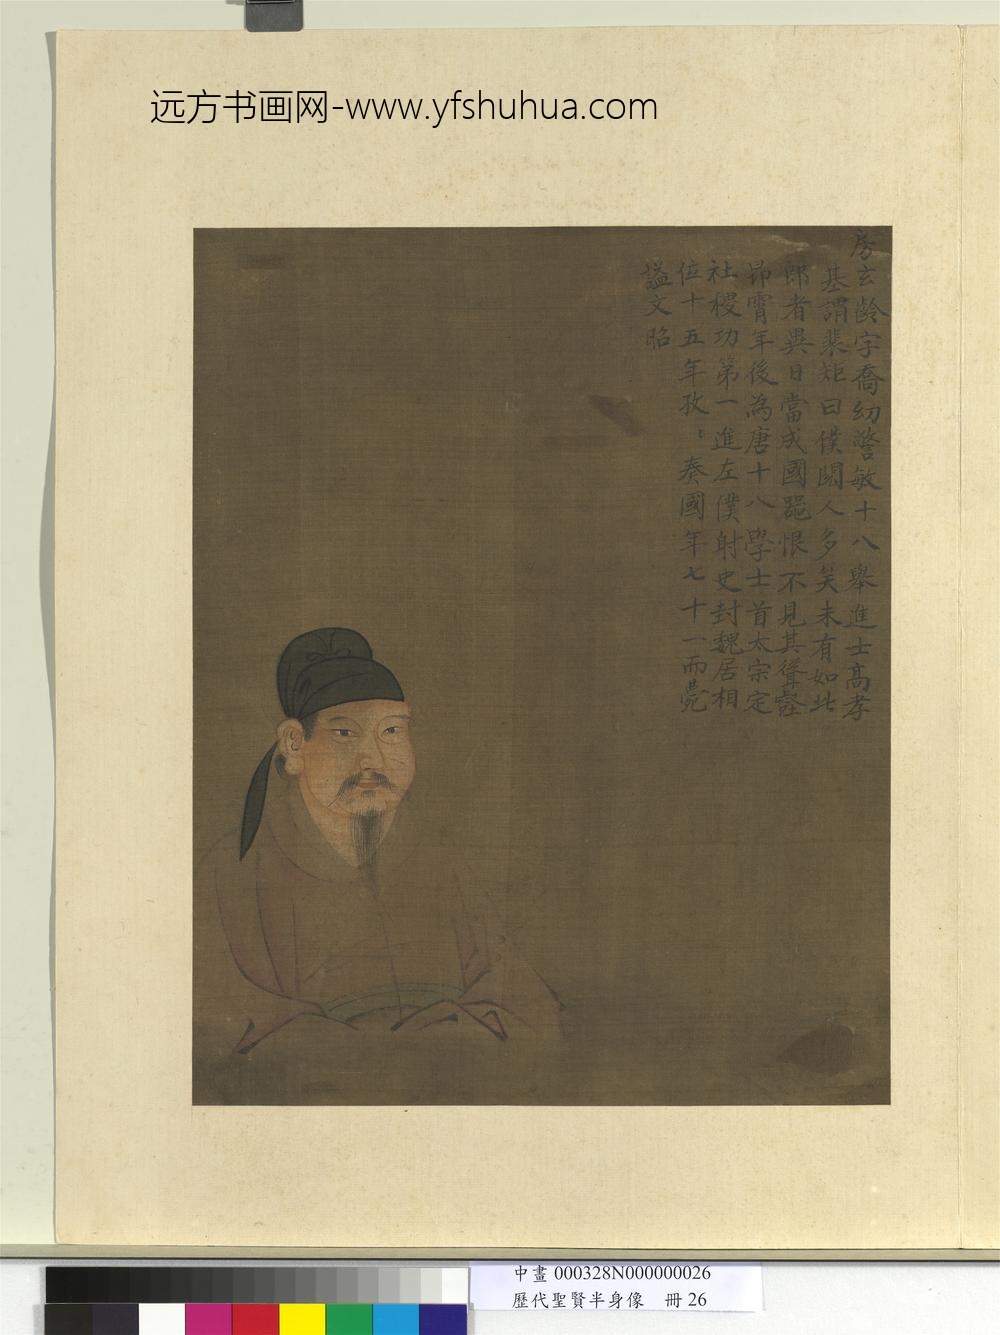 远方书画网-www.yfshuhua.com
房玄齡字喬幼警敏十八舉進士高孝
基謂裴矩曰僕閱人多矣未有如此
郎者異日當成國器恨不見其聳壑
昂霄年後為唐十八學士首太宗定
社稷功第一進左僕射史封魏居相
位十五年孜〻奏國年七十一而薨
謚文昭
中畫 000328N000000026
歷代聖賢半身像 冊 26